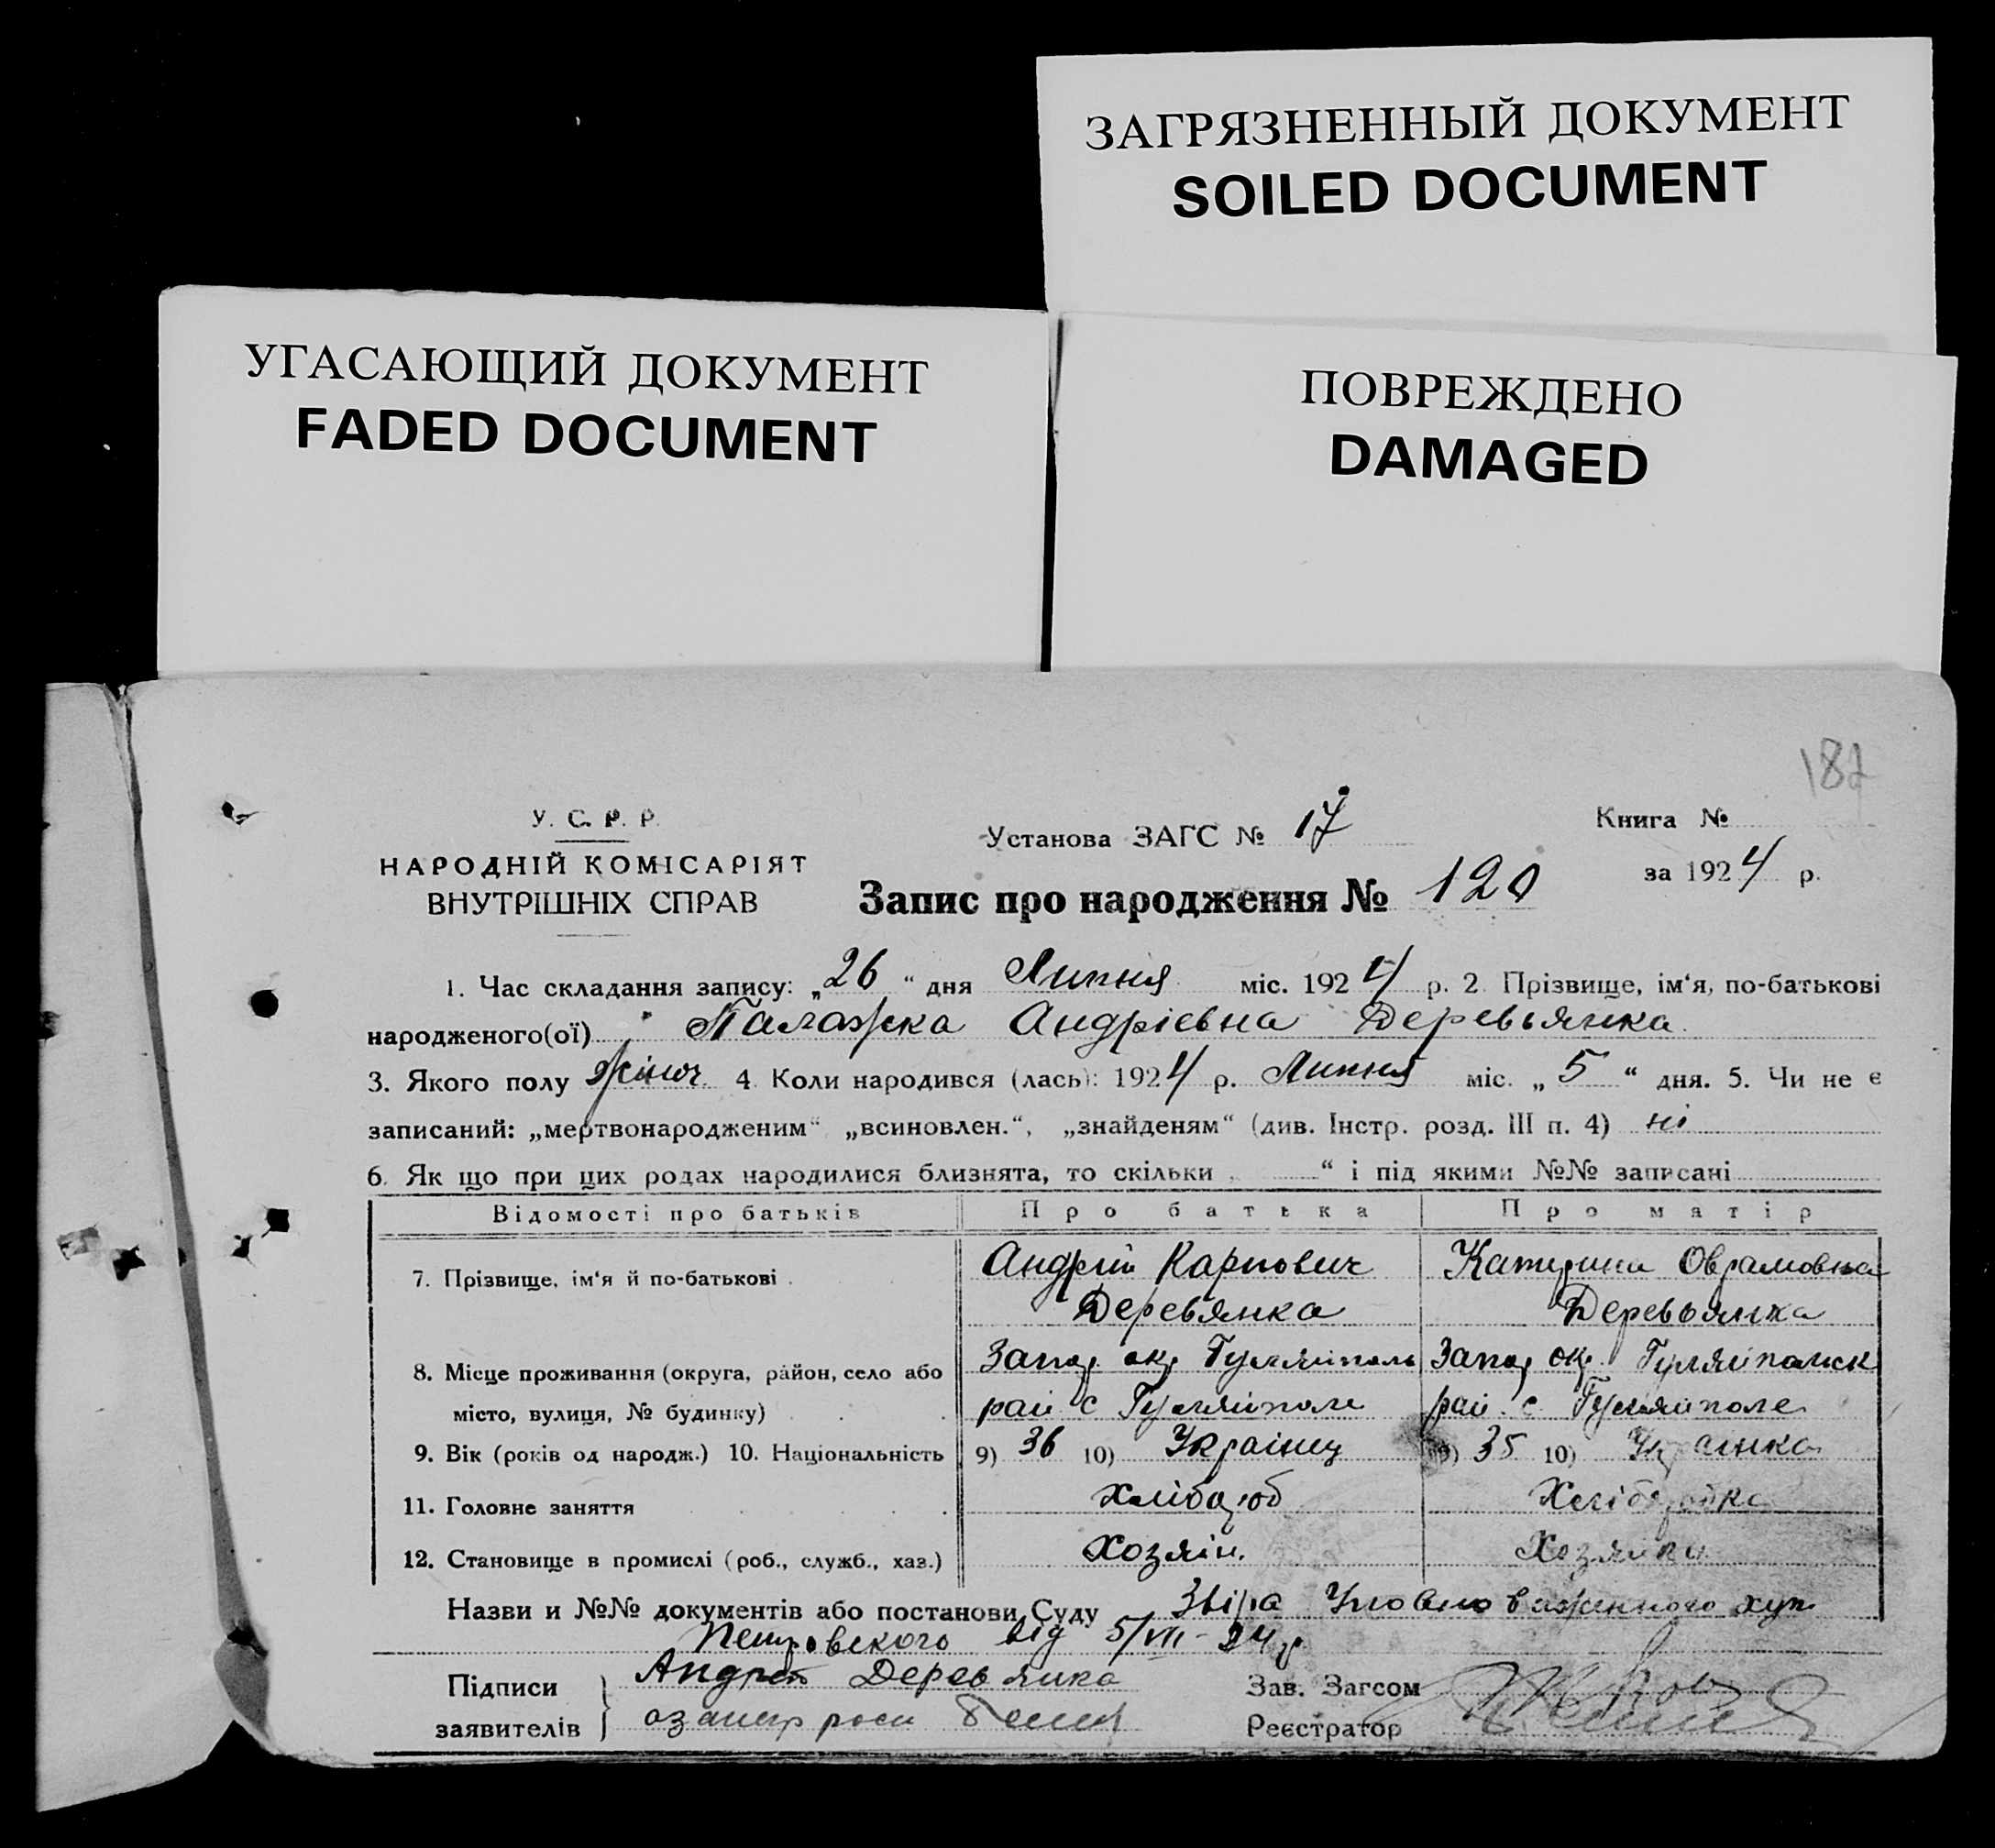 ЗАГРЯЗНЕННЫЙ ДОКУМЕНТ
SOILED DOCUMENT
УГАСАЮЩИЙ ДОКУМЕНТ
FADED DOCUMENT
ПОВРЕЖДЕНО
DAMAGED
187
У. С. Р. Р.
НАРОДНІЙ КОМІСАРІЯТ
ВНУТРІШНІХ СПРАВ
Установа ЗАГС № 17
Книга №
за 1924 р.
Запис про народження № 120
1. Час складання запису: „26“ дня Липня міс. 1924 р. 2. Прізвище, ім‘я, по-батькові
народженого(ої) Палажка Андріевна Деревьянка
3. Якого полу жіноч. 4. Коли народився (лась): 1924 р. Липня міс. „5“ дня. 5. Чи не є
записаний: „мертвонародженим“ „всиновлен.“, „знайденям“ (див. Інстр. розд. III п. 4) ні
6. Як що при цих родах народилися близнята, то скільки “ і під якими №№ записані
Відомості про батьків Про батька Про матір
7. Прізвище, ім‘я й по-батькові Андрій Карпович Катерина Оврамовна
Деревянка Деревьянка
8. Місце проживання (округа, район, село або Запор. окр. Гуляйполь Запор. окр. Гуляйпольск
місто, вулиця, № будинку) рай с Гуляйполе рай. с. Гуляйполе
9. Вік (років од народж.) 10. Національність 9) 36 10) Українец 9) 35 10) Українка
11. Головне заняття Хлібороб Хлібробка
12. Становище в промислі (роб., служб., хаз.) Хозяін. Хозяйка
Назви и №№ документів або постанови Суду Уповноваженного хут
Петровского від 5/VII-24 р.
Підписи Андрей Деревянка
заявителів
Зав. Загсом
Реєстратор